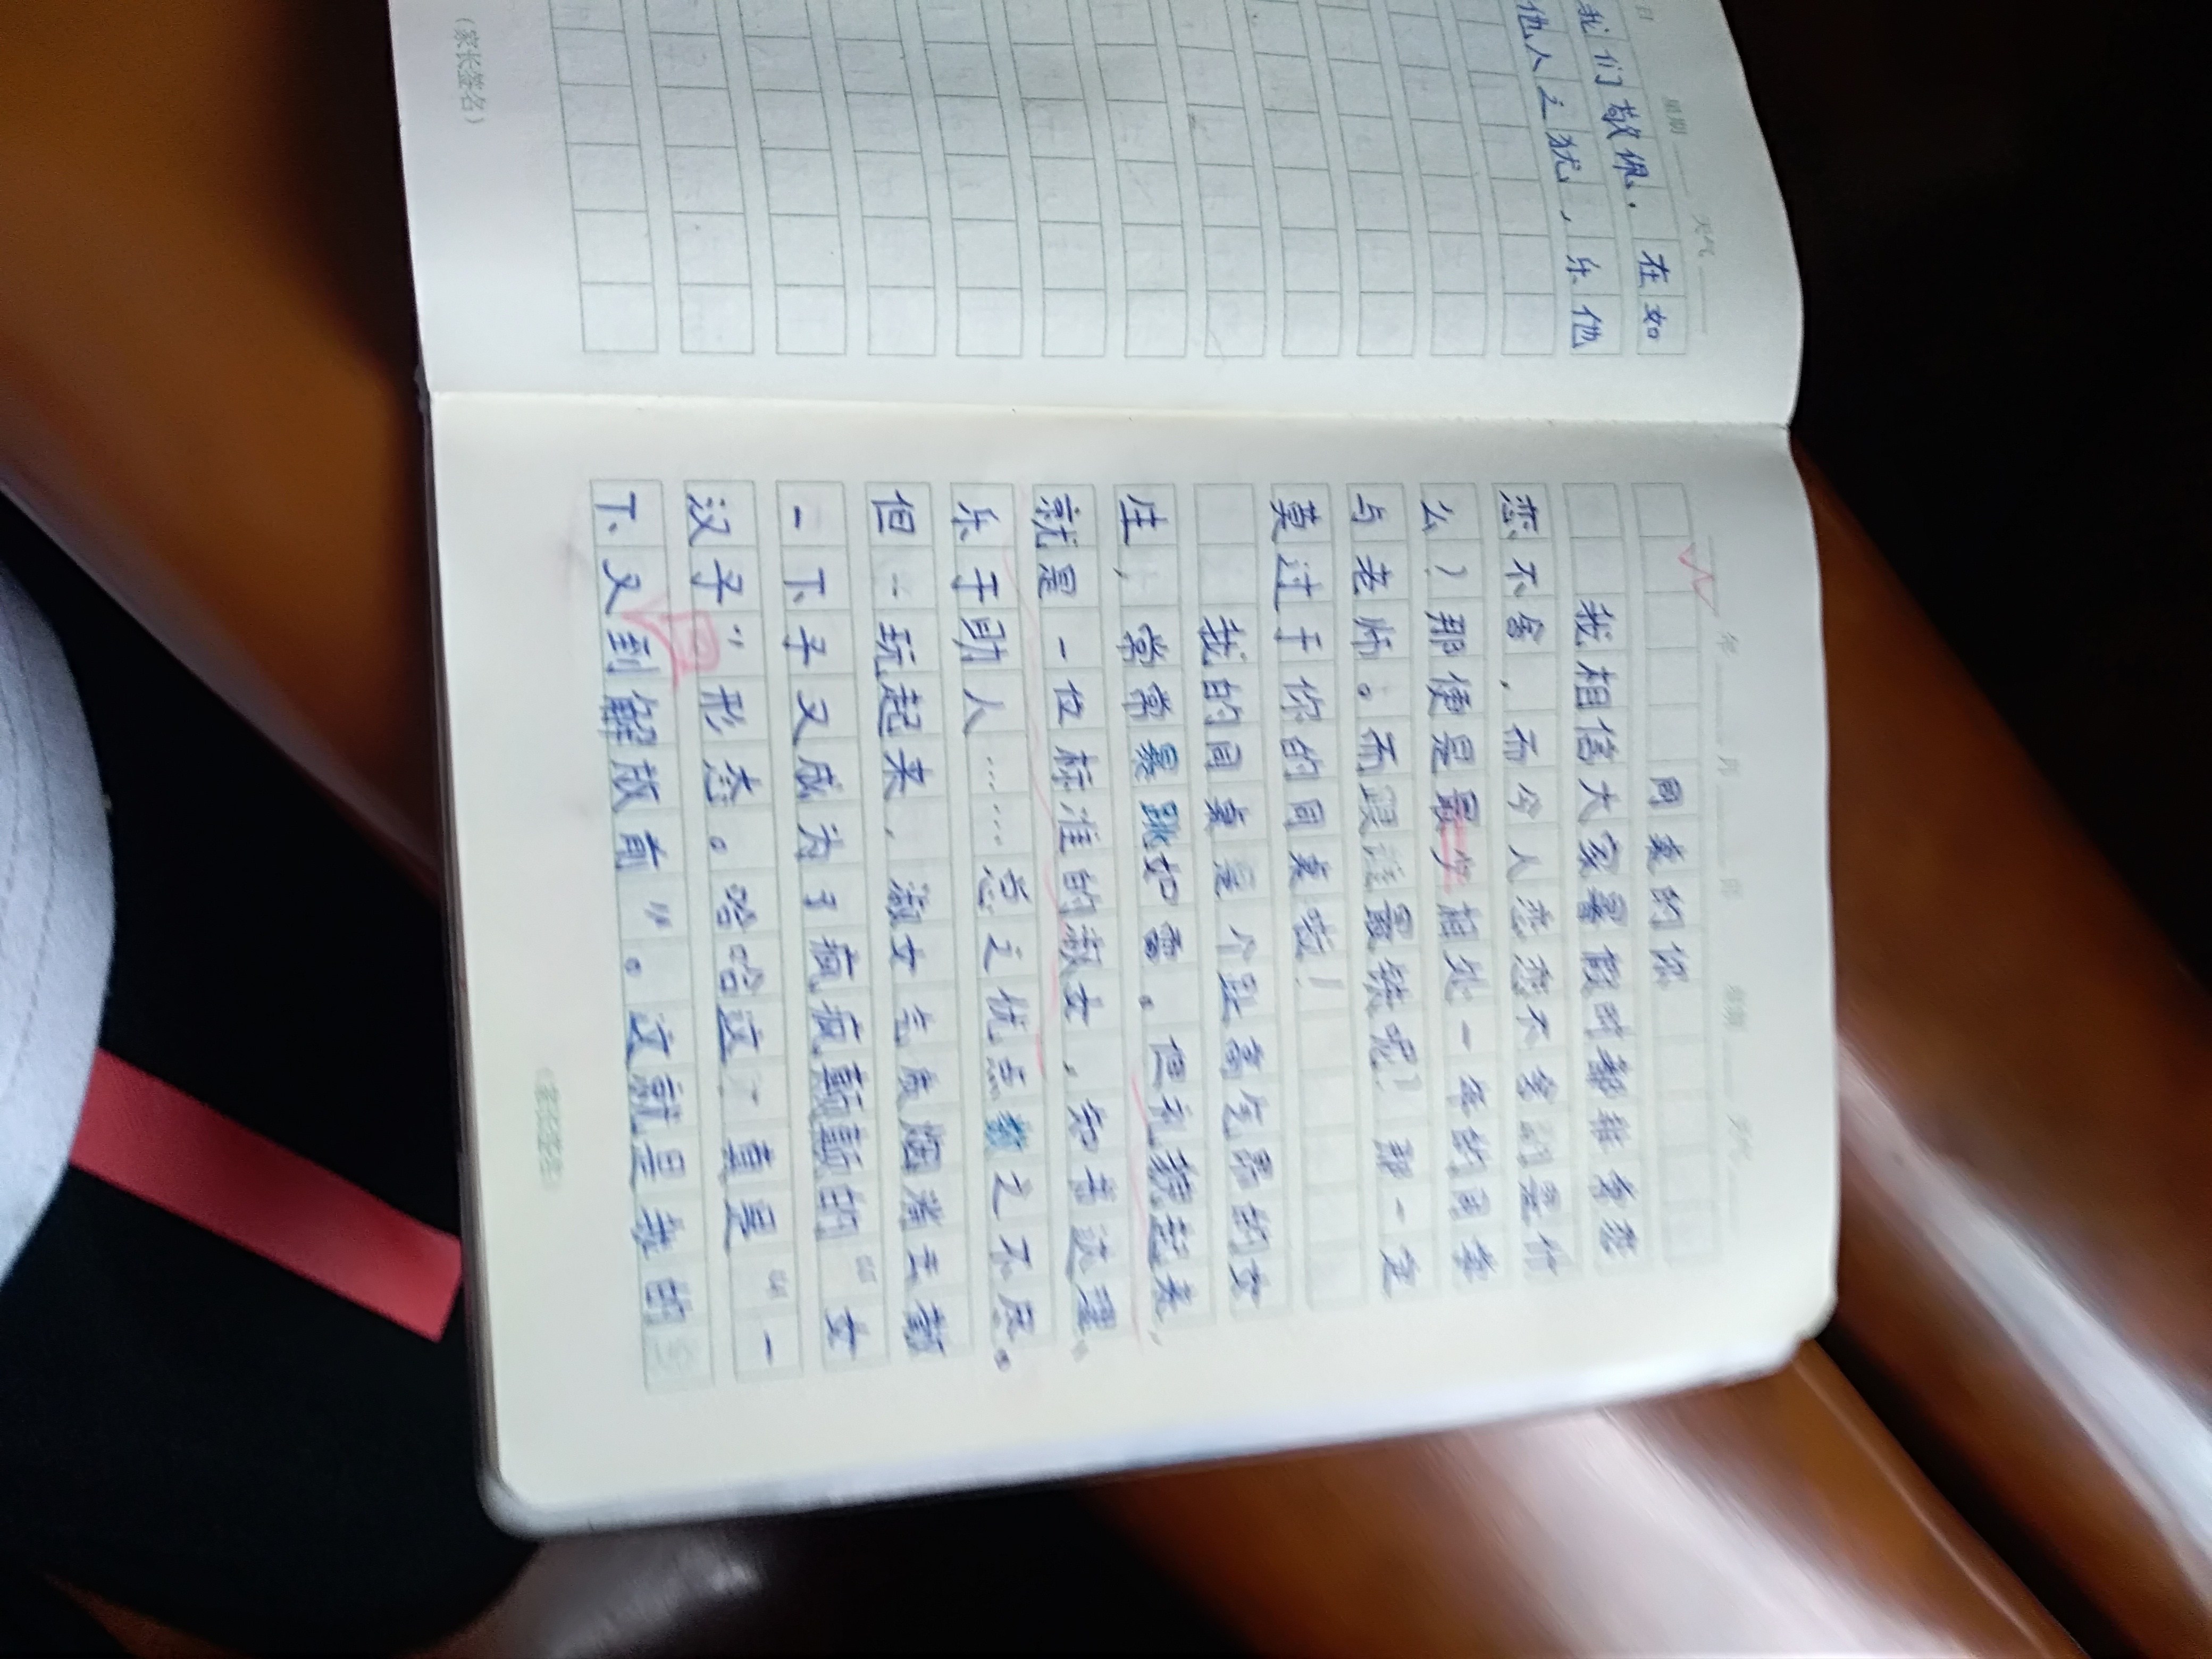 日 星期 天气
我们敬佩. 在如
他人之犹，乐他
（家长签名）
年 月 日 星期 天气
同桌的你
我相信大家暑假时都非常恋
恋不舍，而令人恋恋不舍的是什
么？那便是最少相处一年的同学
与老师。而跟谁最铁呢？那一定
莫过于你的同桌啦！
我的同桌是个趾高气昂的女
生，常常暴跳如雷。但礼貌起来，
就是一位标准的淑女，知书达理、
乐于助人……总之优点数之不尽。
但一玩起来，淑女气质烟消云散
一下子又成为了疯疯颠颠的“女
汉子”形态。哈哈这？真是“一
下又到解放前”。这就是我的
（家长签名）